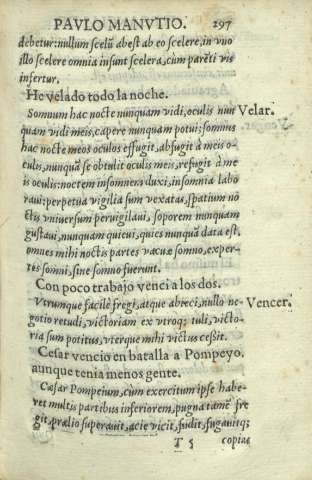 PAVLO MANVTIO. 297
debetur: nullum scelũ abest ab eo scelere, in vno
illo scelere omnia insunt scelera, cum parẽti vis
infertur.
He velado todo la noche.
Somnum hac nocte nunquam vidi, oculis nun
Velar.
quam vidi meis, capere nunquam potui: somnus
hac nocte meos oculos effugit, abfugit à meis o-
culis, nunquã se obtulit oculis meis, refugit à me
is oculis: noctem insomnem duxi, insomnia labo
raui: perpetua vigilia sum vexatas, spatium no
ctis vniuersum peruigilaui, soporem nunquam
gustaui, nunquam quieui, quies nunquã data est,
omnes mihi noctis partes vacuæ somno, exper-
tes somni, sine somno fuerunt.
Con poco trabajo venci a los dos.
Vtrumque facilè fregi, atque abreci, nullo ne-
Vencer.
gotio retudi, victoriam ex vtroq; tuli, victo-
ria sum potitus, vterque mihi victus cessit.
Cesar vencio en batalla a Pompeyo,
aunque tenia menos gente.
Cæsar Pompeium, cum exercitum ipse habe-
ret multis partibus inferiorem, pugna tamẽ fre
git, prælio superauit, acie vicit, fudit, fugauitq;
T 5 copias